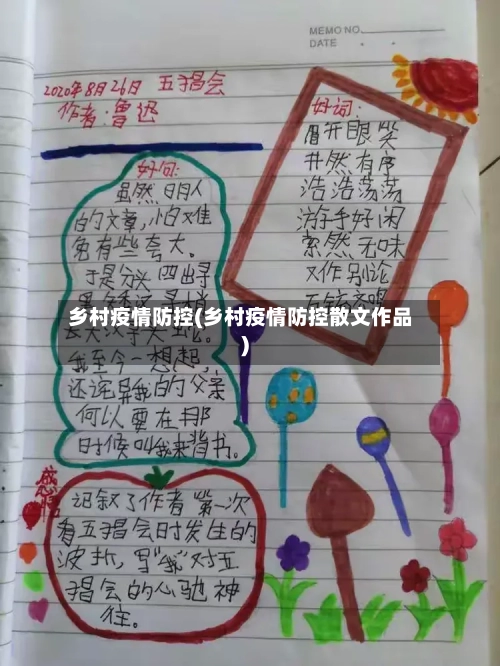 MEMO NO.
DATE
2020年8月26日 五猖会
作者:鲁迅
好句:
虽然明人
的文章,怕难
免有些夸大。
于是分头四出寻
我至今一想起,
还诧异我的父亲
何以要在那
时候叫我来背书。
好词:
眉开眼笑
井然有序
浩浩荡荡
游手好闲
索然无味
又作别论
乡村疫情防控(乡村疫情防控散文作品
)
感悟
记叙了作者第一次
看五猖会时发生的
波折,写“我”对五
猖会的心驰神
往。